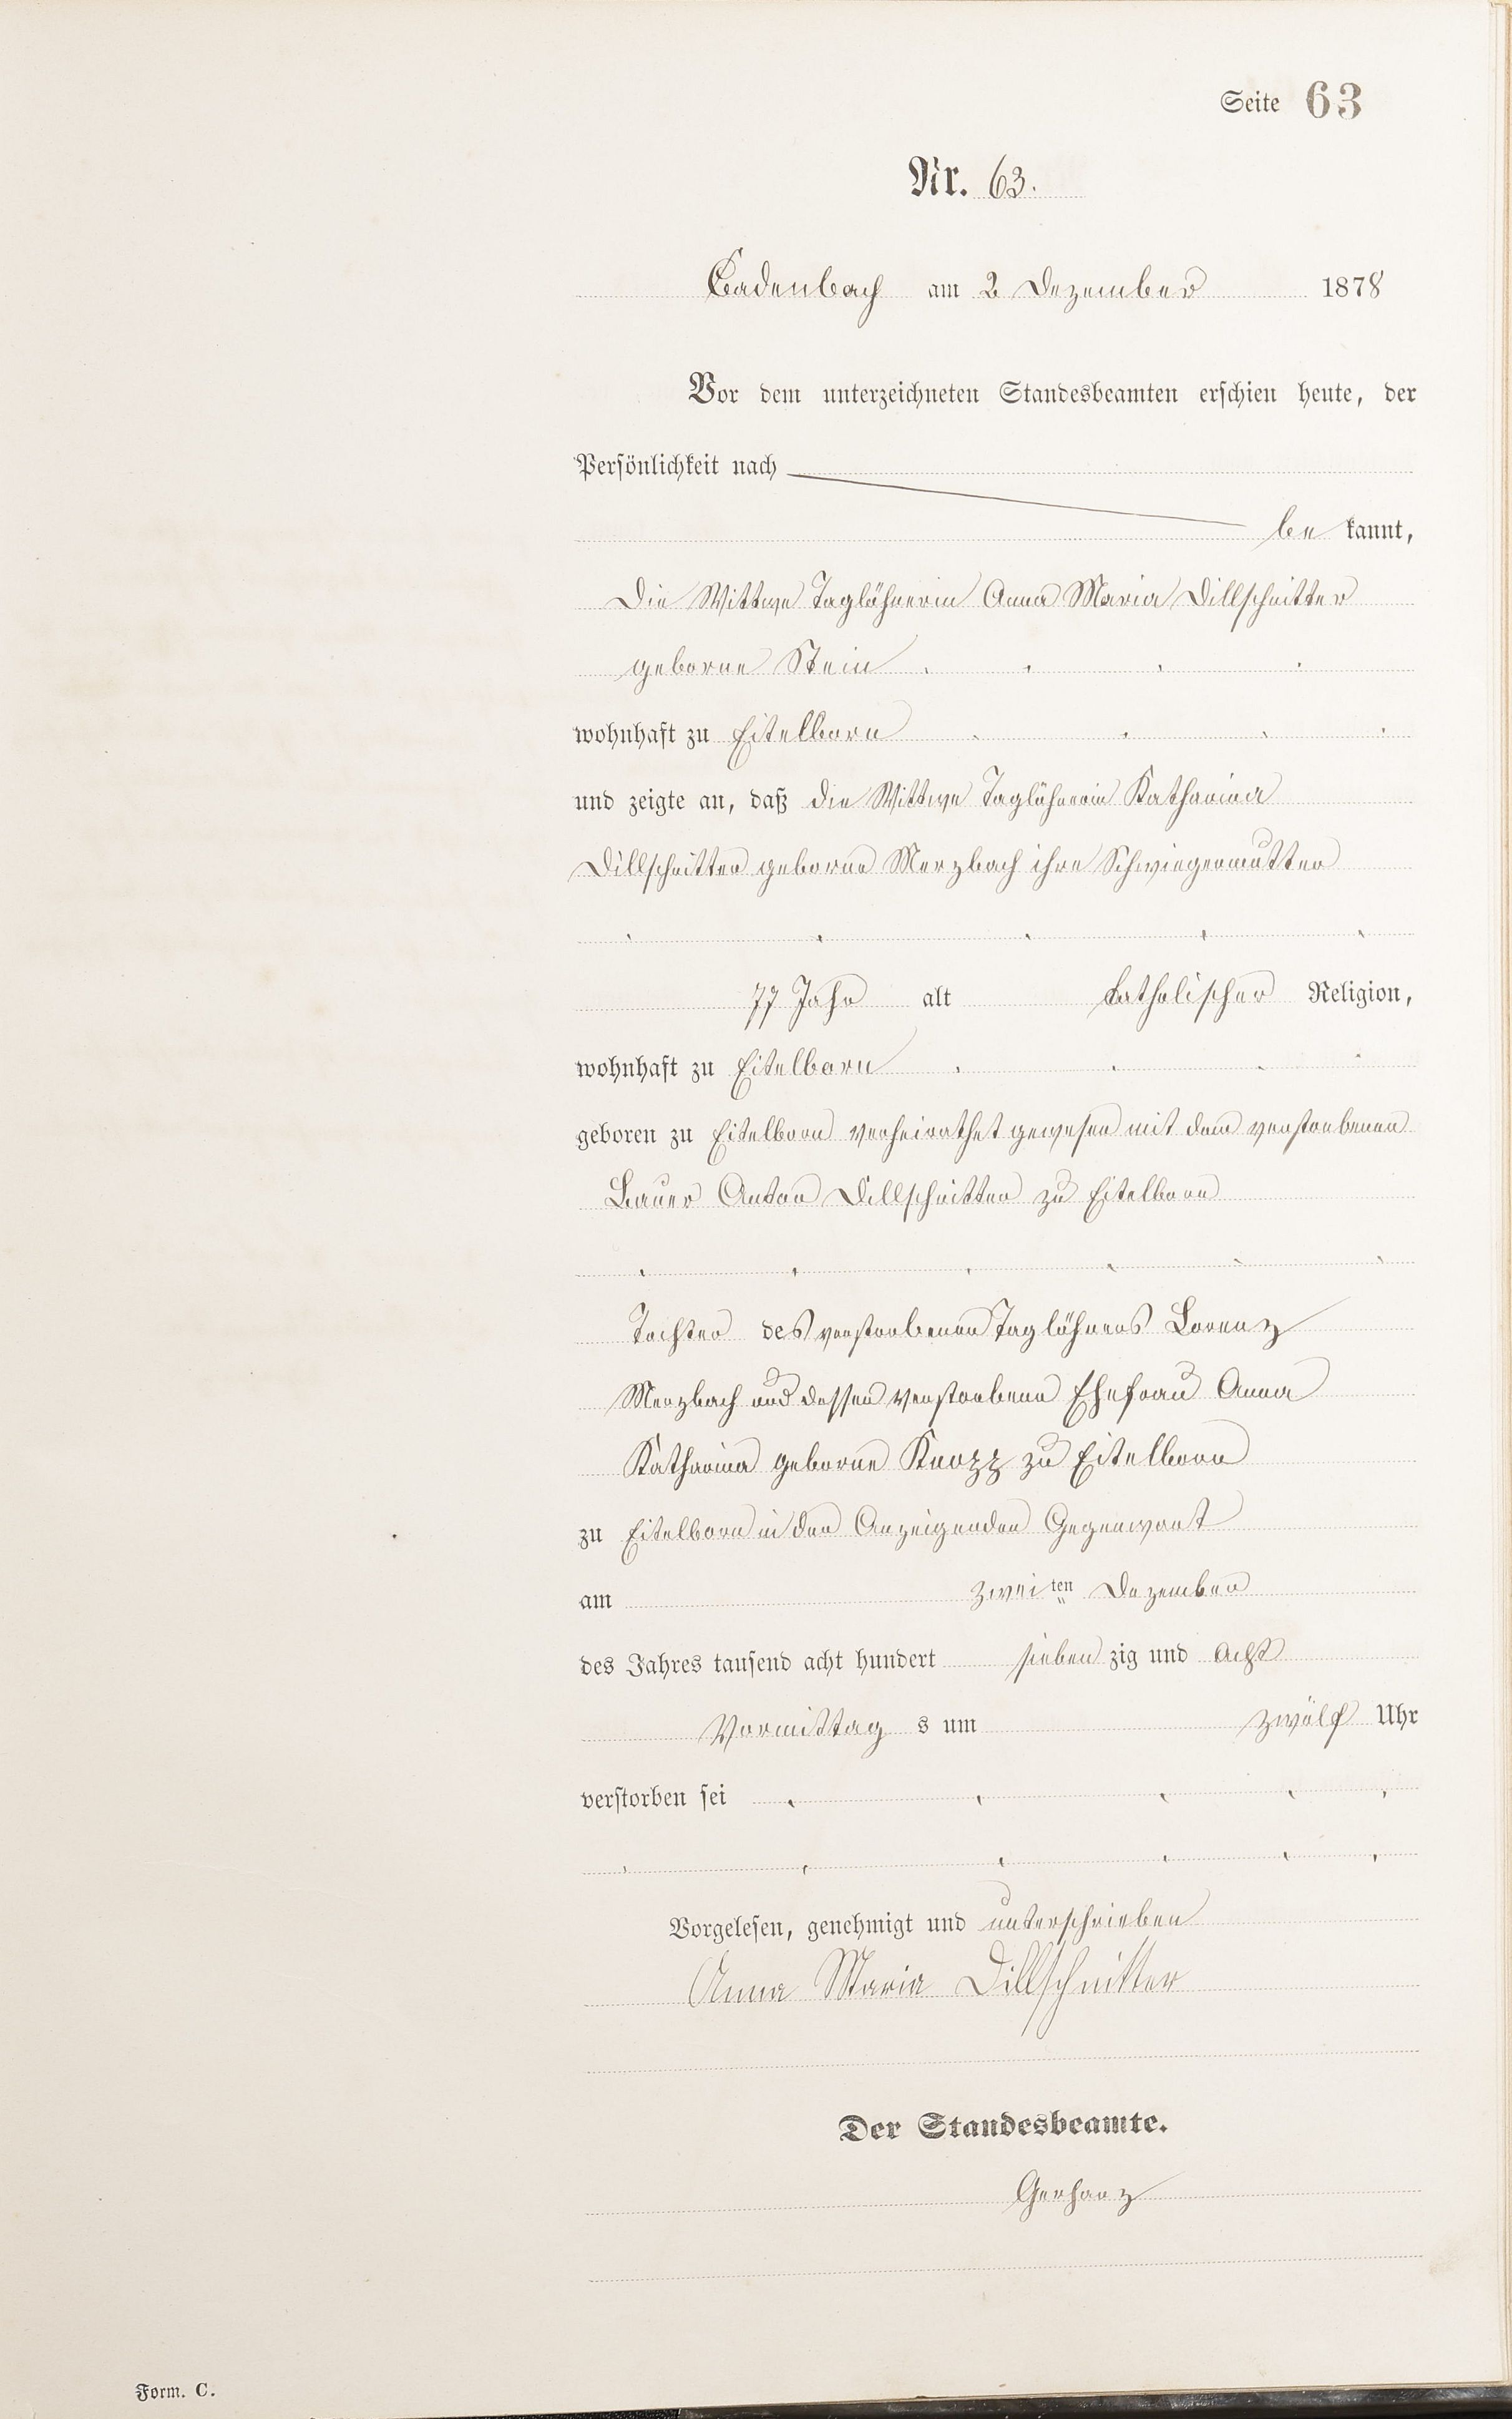 Seite 63
Nr. 63.
Cadenbach am 2 Dezember 1878
Vor dem unterzeichneten Standesbeamten erschien heute, der
Persönlichkeit nach
be kannt,
die Wittwe Taglöhnerin Anna Maria Dillschnitter
geborne Stein
wohnhaft zu Eitelborn
und zeigte an, daß die Wittwe Taglöhnerin Katharina
Dillschnitter geborne Merzbach ihre Schwiegermutter
77 Jahr alt katholischer Religion,
wohnhaft zu Eitelborn
geboren zu Eitelborn verheirathet gewesen mit dem verstorbenen
Bauer Anton Dillschnitter zu Eitelborn
Tochter des verstorbenen Taglöhners Lorenz
Merzbach und dessen verstorbene Ehefrau Anna
Katharina geborne Knopp zu Eitelborn
zu Eitelborn in der Anzeigenden Gegenwart
am zwei ten Dezember
des Jahres tausend acht hundert sieben zig und acht
Vormittag s um zwölf Uhr
verstorben sei
Vorgelesen, genehmigt und unterschrieben
Anna Maria Dillschnitter
Der Standesbeamte.
Gerharz
Form. C.